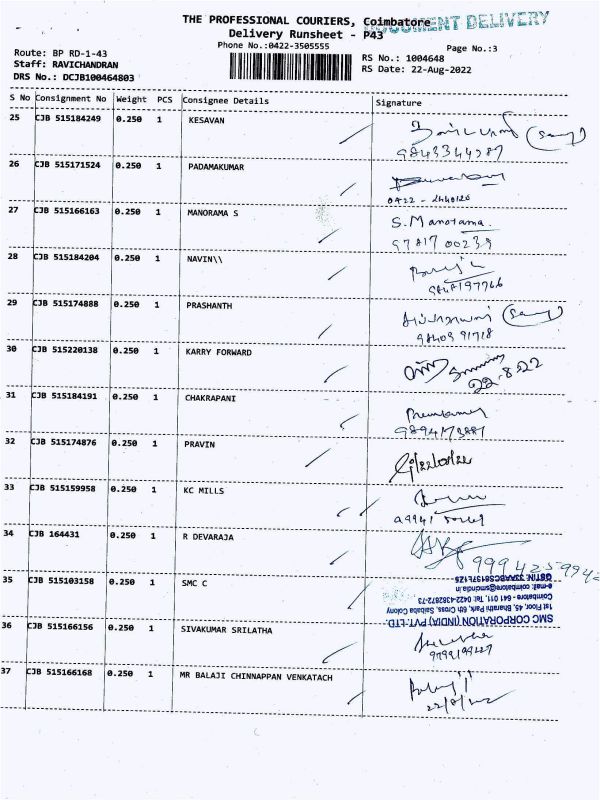 THE PROFESSIONAL COURIERS, Coimbatore
DOCUMENT DELIVERY
Delivery Runsheet - P43
Phone No.:0422-3505555
Page No.:3
Route: BP RD-1-43
Staff: RAVICHANDRAN
DRS No.: DCJB100464803
RS No.: 1004648
RS Date: 22-Aug-2022
S No Consignment No Weight PCS Consignee Details Signature
25 CJB 515184249 0.250 1 KESAVAN
9843344987
26 CJB 515171524 0.250 1 PADAMAKUMAR
0422 - 2440126
27 CJB 515166163 0.250 1 MANORAMA S S.Manorama
97817 00239
28 CJB 515184204 0.250 1 NAVIN\\
29 CJB 515174888 0.250 1 PRASHANTH
98409 91718
30 CJB 515220138 0.250 1 KARRY FORWARD
22.8.22
31 CJB 515184191 0.250 1 CHAKRAPANI
32 CJB 515174876 0.250 1 PRAVIN
22/08/22
33 CJB 515159958 0.250 1 KC MILLS
34 CJB 164431 0.250 1 R DEVARAJA
9994259942
35 CJB 515103158 0.250 1 SMC C
SMC CORPORATION (INDIA) PVT. LTD.
1st Floor, 45, Bharathi Park, 6th Cross, Saibaba Colony
Coimbatore - 641 011. Tel: 0422-2382872-73
e-mail: coimbatore@smcindia.in
36 CJB 515166156 0.250 1 SIVAKUMAR SRILATHA
37 CJB 515166168 0.250 1 MR BALAJI CHINNAPPAN VENKATACH